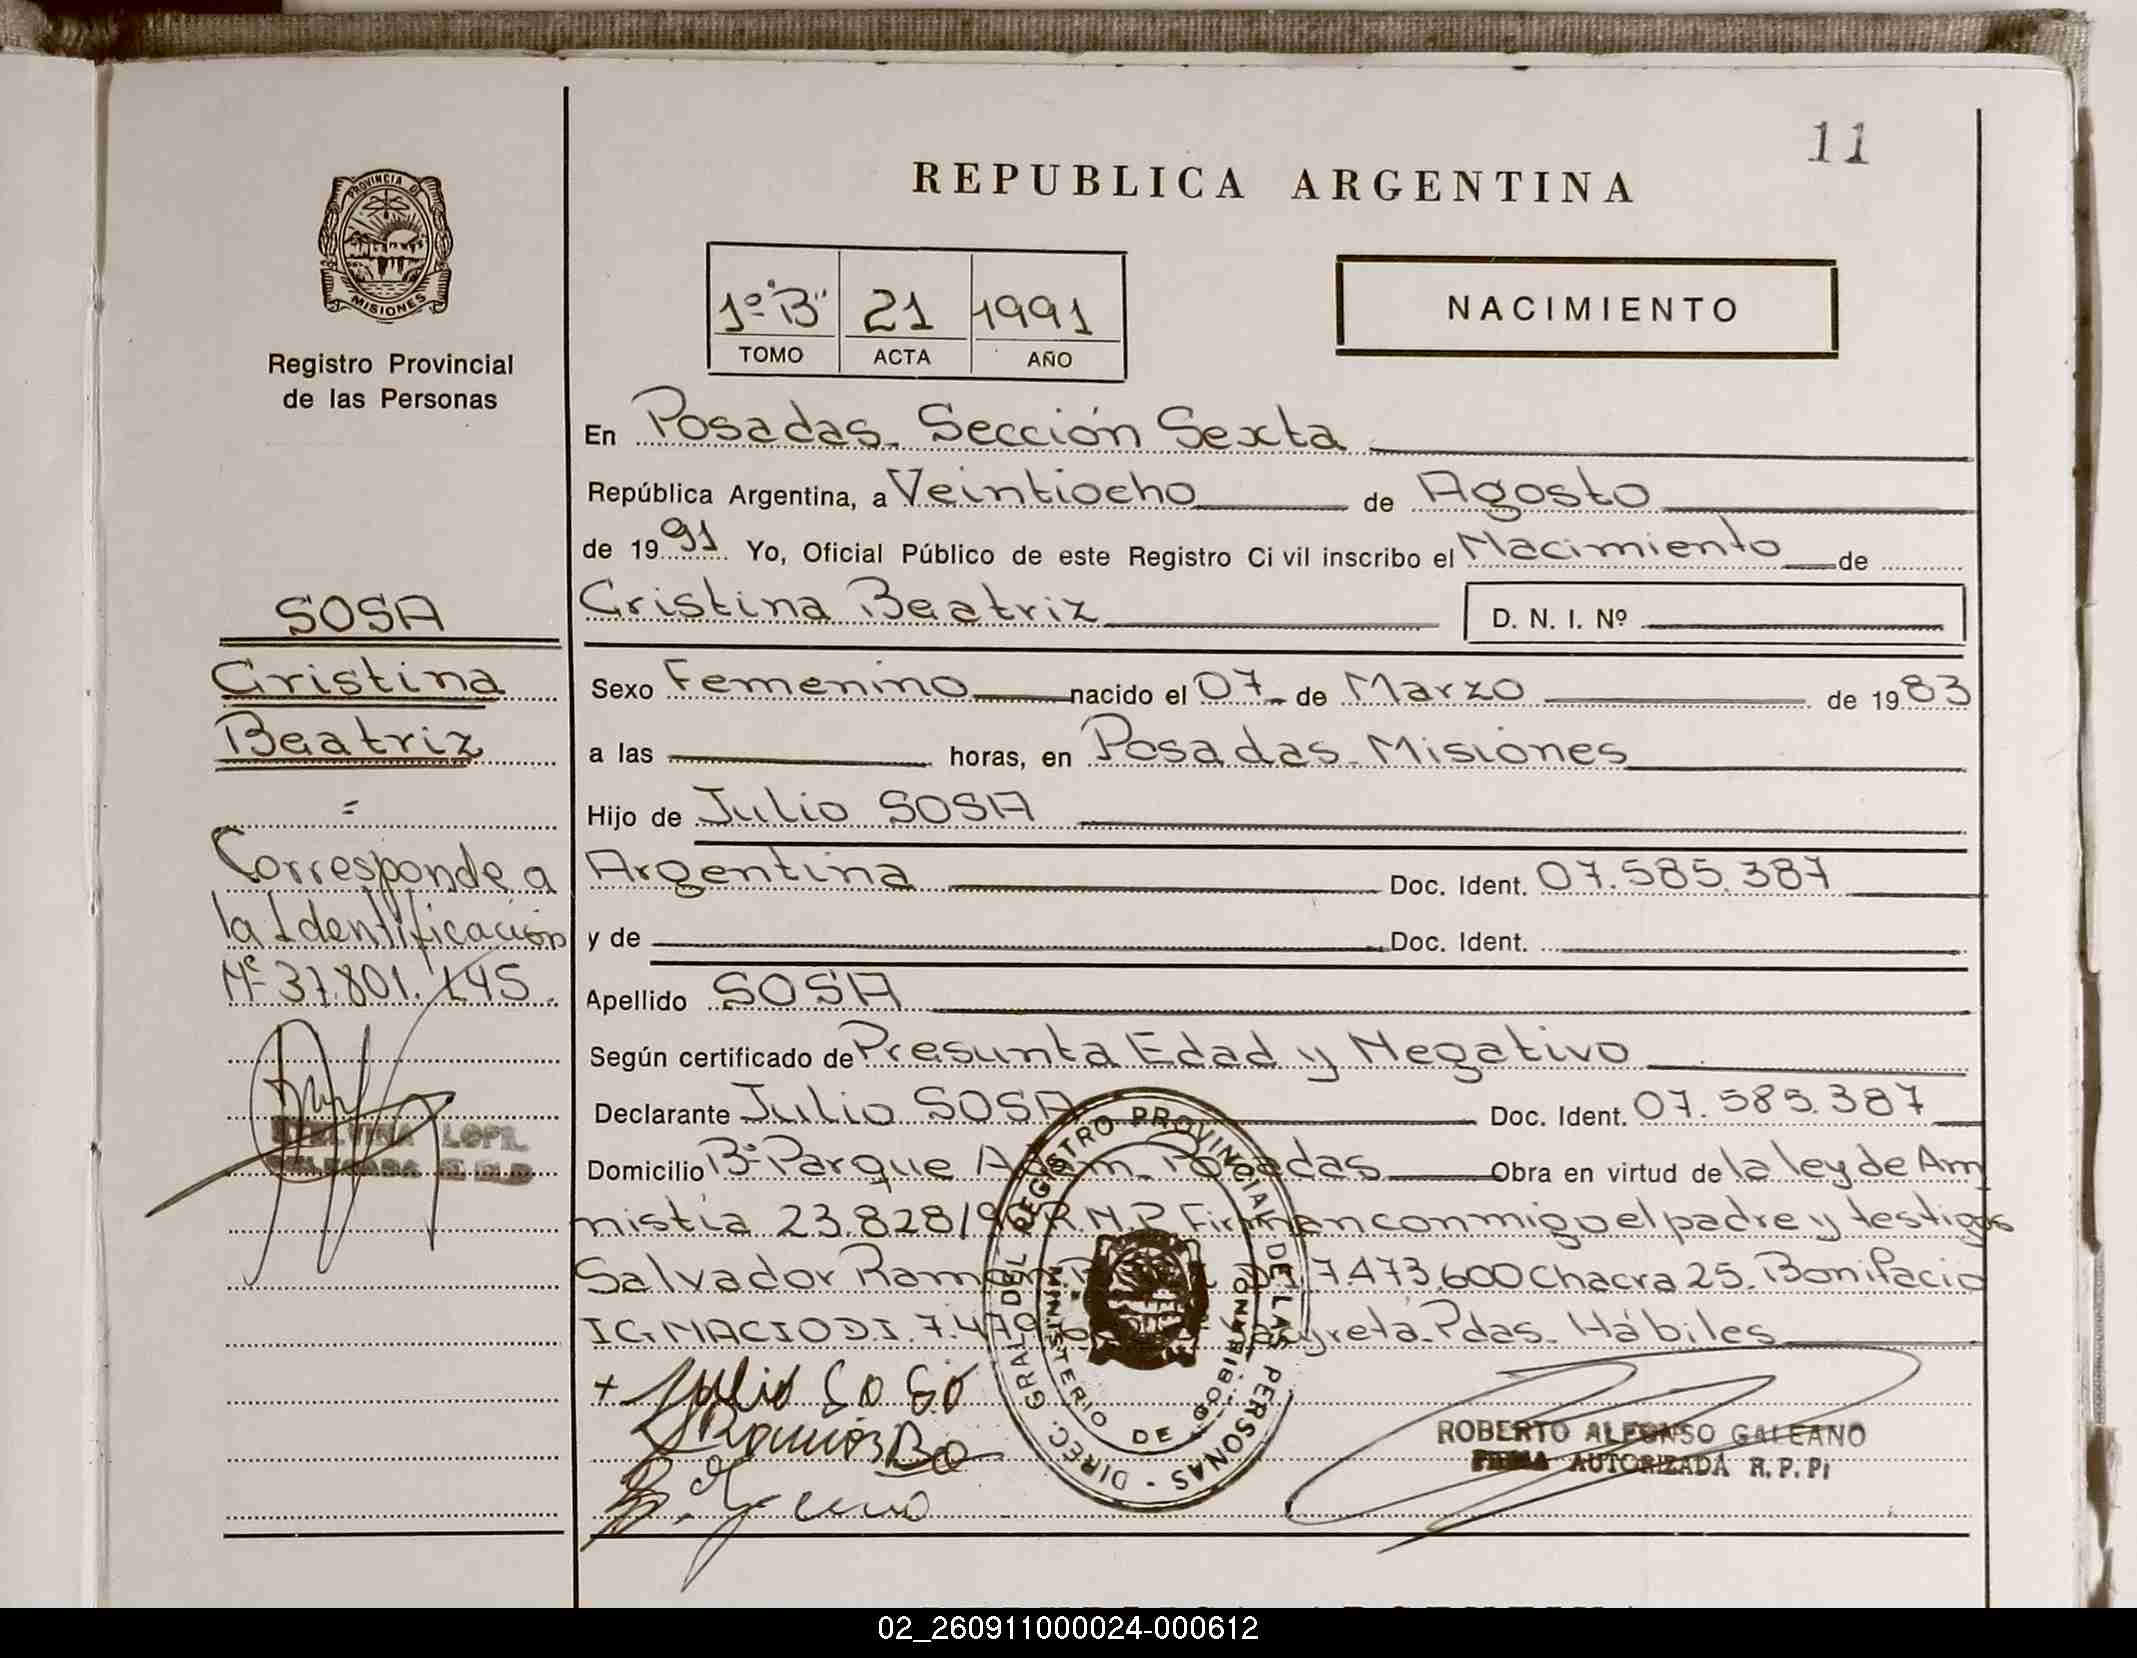 11
REPUBLICA ARGENTINA
PROVINCIA DE
MISIONES
Registro Provincial
de las Personas
1º "B" 21 1991
TOMO ACTA AÑO
NACIMIENTO
En Posadas. Sección Sexta
República Argentina, a Veintiocho de Agosto
de 1991 Yo, Oficial Público de este Registro Civil inscribo el Nacimiento de
Cristina Beatriz D. N. I. Nº
Sexo Femenino nacido el 07 de Marzo de 1983
a las horas, en Posadas. Misiones
Hijo de Julio SOSA
Argentina Doc. Ident. 07.585.387
y de Doc. Ident.
Apellido SOSA
Según certificado de Presunta Edad y Negativo
Declarante Julio SOSA Doc. Ident. 07.585.387
Domicilio Bº Parque Posadas Obra en virtud de la ley de Am
nistía 23.828/ R.N.P. Firman conmigo el padre y testigos
Salvador Ramón 7.473.600 Chacra 25. Bonifacio
IGNACIO D.I. 7.479 Pdas. Hábiles
+ Julio SoSa
ROBERTO ALFONSO GALEANO
FIRMA AUTORIZADA R.P.P.
DIREC. GRAL DEL REGISTRO PROVINCIAL DE LAS PERSONAS
MINISTERIO DE GOBIERNO
SOSA
Cristina
Beatriz
=
Corresponde a
la Identificación
Nº 37.801.145
02_260911000024-000612